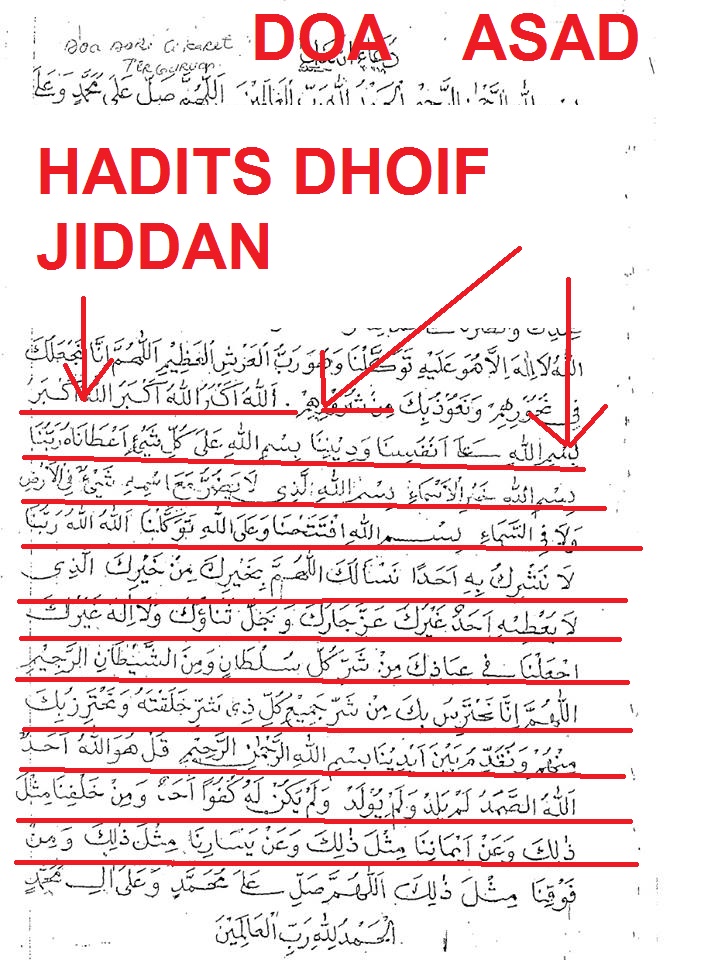 DOA ASAD
DOA DARI
بسم الله الرحمن الرحيم الحمد لله رب العالمين اللهم صل على محمد وعلى
HADITS DHOIF
JIDDAN
اللهُ لَا اِلٰهَ اِلَّا هُوَ عَلَيْهِ تَوَكَّلْنَا وَهُوَ رَبُّ الْعَرْشِ الْعَظِيْمِ اَللّٰهُمَّ اِنَّا نَجْعَلُكَ
فِى نُحُوْرِهِمْ وَنَعُوْذُ بِكَ مِنْ شُرُوْرِهِمْ . اَللهُ اَكْبَرُ اللهُ اَكْبَرُ اللهُ اَكْبَرُ
بِسْمِ اللهِ عَلَى اَنْفُسِنَا وَدِيْنِنَا بِسْمِ اللهِ عَلَى كُلِّ شَيْئٍ اَعْطَانَاهُ رَبُّنَا
بِسْمِ اللهِ خَيْرِ الْاَسْمَاءِ بِسْمِ اللهِ الَّذِى لَا يَضُرُّ مَعَ اسْمِهِ شَيْئٌ فِى الْاَرْضِ
وَلَا فِى السَّمَاءِ بِسْمِ اللهِ افْتَتَحْنَا وَعَلَى اللهِ تَوَكَّلْنَا اَللهُ اَللهُ رَبُّنَا
لَا نُشْرِكُ بِهِ اَحَدًا نَسْأَلُكَ اللّٰهُمَّ بِخَيْرِكَ مِنْ خَيْرِكَ الَّذِى
لَا يُعْطِيْهِ اَحَدٌ غَيْرُكَ عَزَّ جَارُكَ وَجَلَّ ثَنَاؤُكَ وَلَا اِلٰهَ غَيْرُكَ
اجْعَلْنَا فِى عِبَادِكَ مِنْ شَرِّ كُلِّ سُلْطَانٍ وَمِنَ الشَّيْطَانِ الرَّجِيْمِ
اَللّٰهُمَّ اِنَّا نَحْتَرِسُ بِكَ مِنْ شَرِّ جَمِيْعِ كُلِّ ذِى شَرٍّ خَلَقْتَهُ وَنَحْتَرِزُ بِكَ
مِنْهُمْ وَنُقَدِّمُ بَيْنَ اَيْدِيْنَا بِسْمِ اللهِ الرَّحْمٰنِ الرَّحِيْمِ قُلْ هُوَ اللهُ اَحَدٌ
اَللهُ الصَّمَدُ لَمْ يَلِدْ وَلَمْ يُوْلَدْ وَلَمْ يَكُنْ لَهُ كُفُوًا اَحَدٌ وَمِنْ خَلْفِنَا مِثْلَ
ذٰلِكَ وَعَنْ اَيْمَانِنَا مِثْلَ ذٰلِكَ وَعَنْ يَسَارِنَا مِثْلَ ذٰلِكَ وَمِنْ
فَوْقِنَا مِثْلَ ذٰلِكَ اَللّٰهُمَّ صَلِّ عَلَى مُحَمَّدٍ وَعَلَى اٰلِ مُحَمَّدٍ
اَلْحَمْدُ لِلّٰهِ رَبِّ الْعَالَمِيْنَ